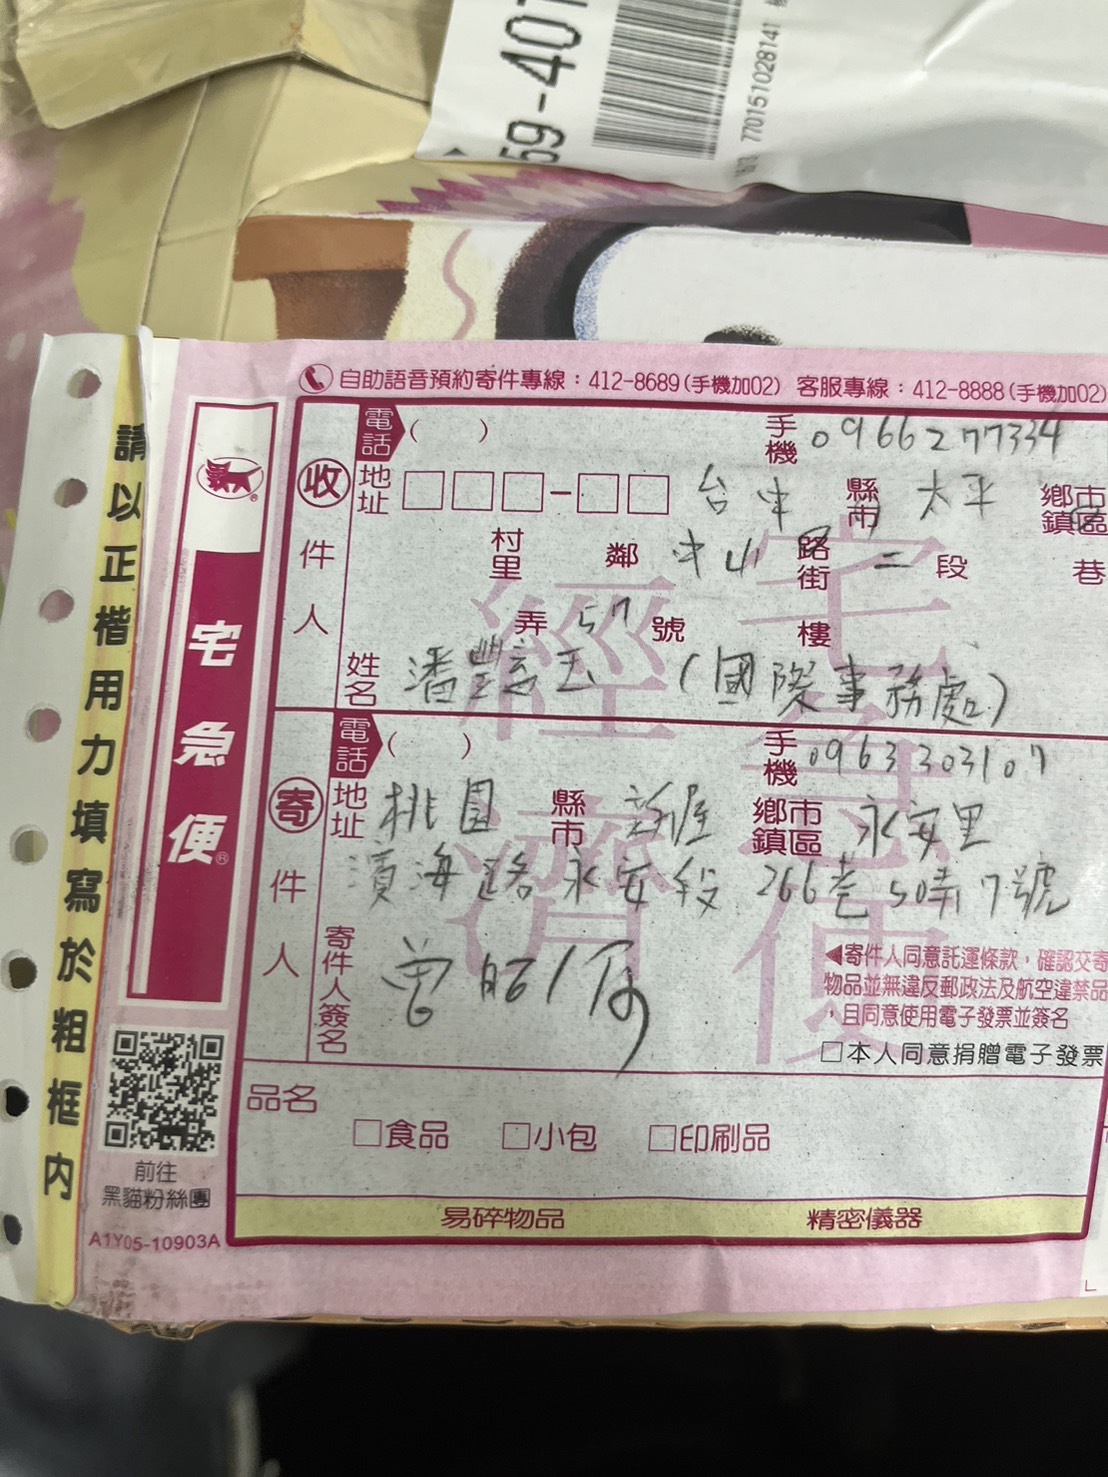 59-401
770151028141
自助語音預約寄件專線：412-8689(手機加02) 客服專線：412-8888(手機加02)
請以正楷用力填寫於粗框內
宅急便®
收件人
電話 ( ) 手機 0966277334
地址 □□□-□□ 台中 縣市 太平 鄉市鎮區
村里 鄰 中山 路街 二 段 巷
弄 57 號 樓
姓名 潘 玉 (國際事務處)
寄件人
電話 ( ) 手機 0963303107
地址 桃園 縣市 新屋 鄉市鎮區 永安里
濱海路永安段 266巷50弄7號
寄件人簽名 曾
◀寄件人同意託運條款，確認交寄
物品並無違反郵政法及航空違禁品
，且同意使用電子發票並簽名
□本人同意捐贈電子發票
品名
□食品 □小包 □印刷品
易碎物品 精密儀器
經濟宅急便
前往
黑貓粉絲團
A1Y05-10903A